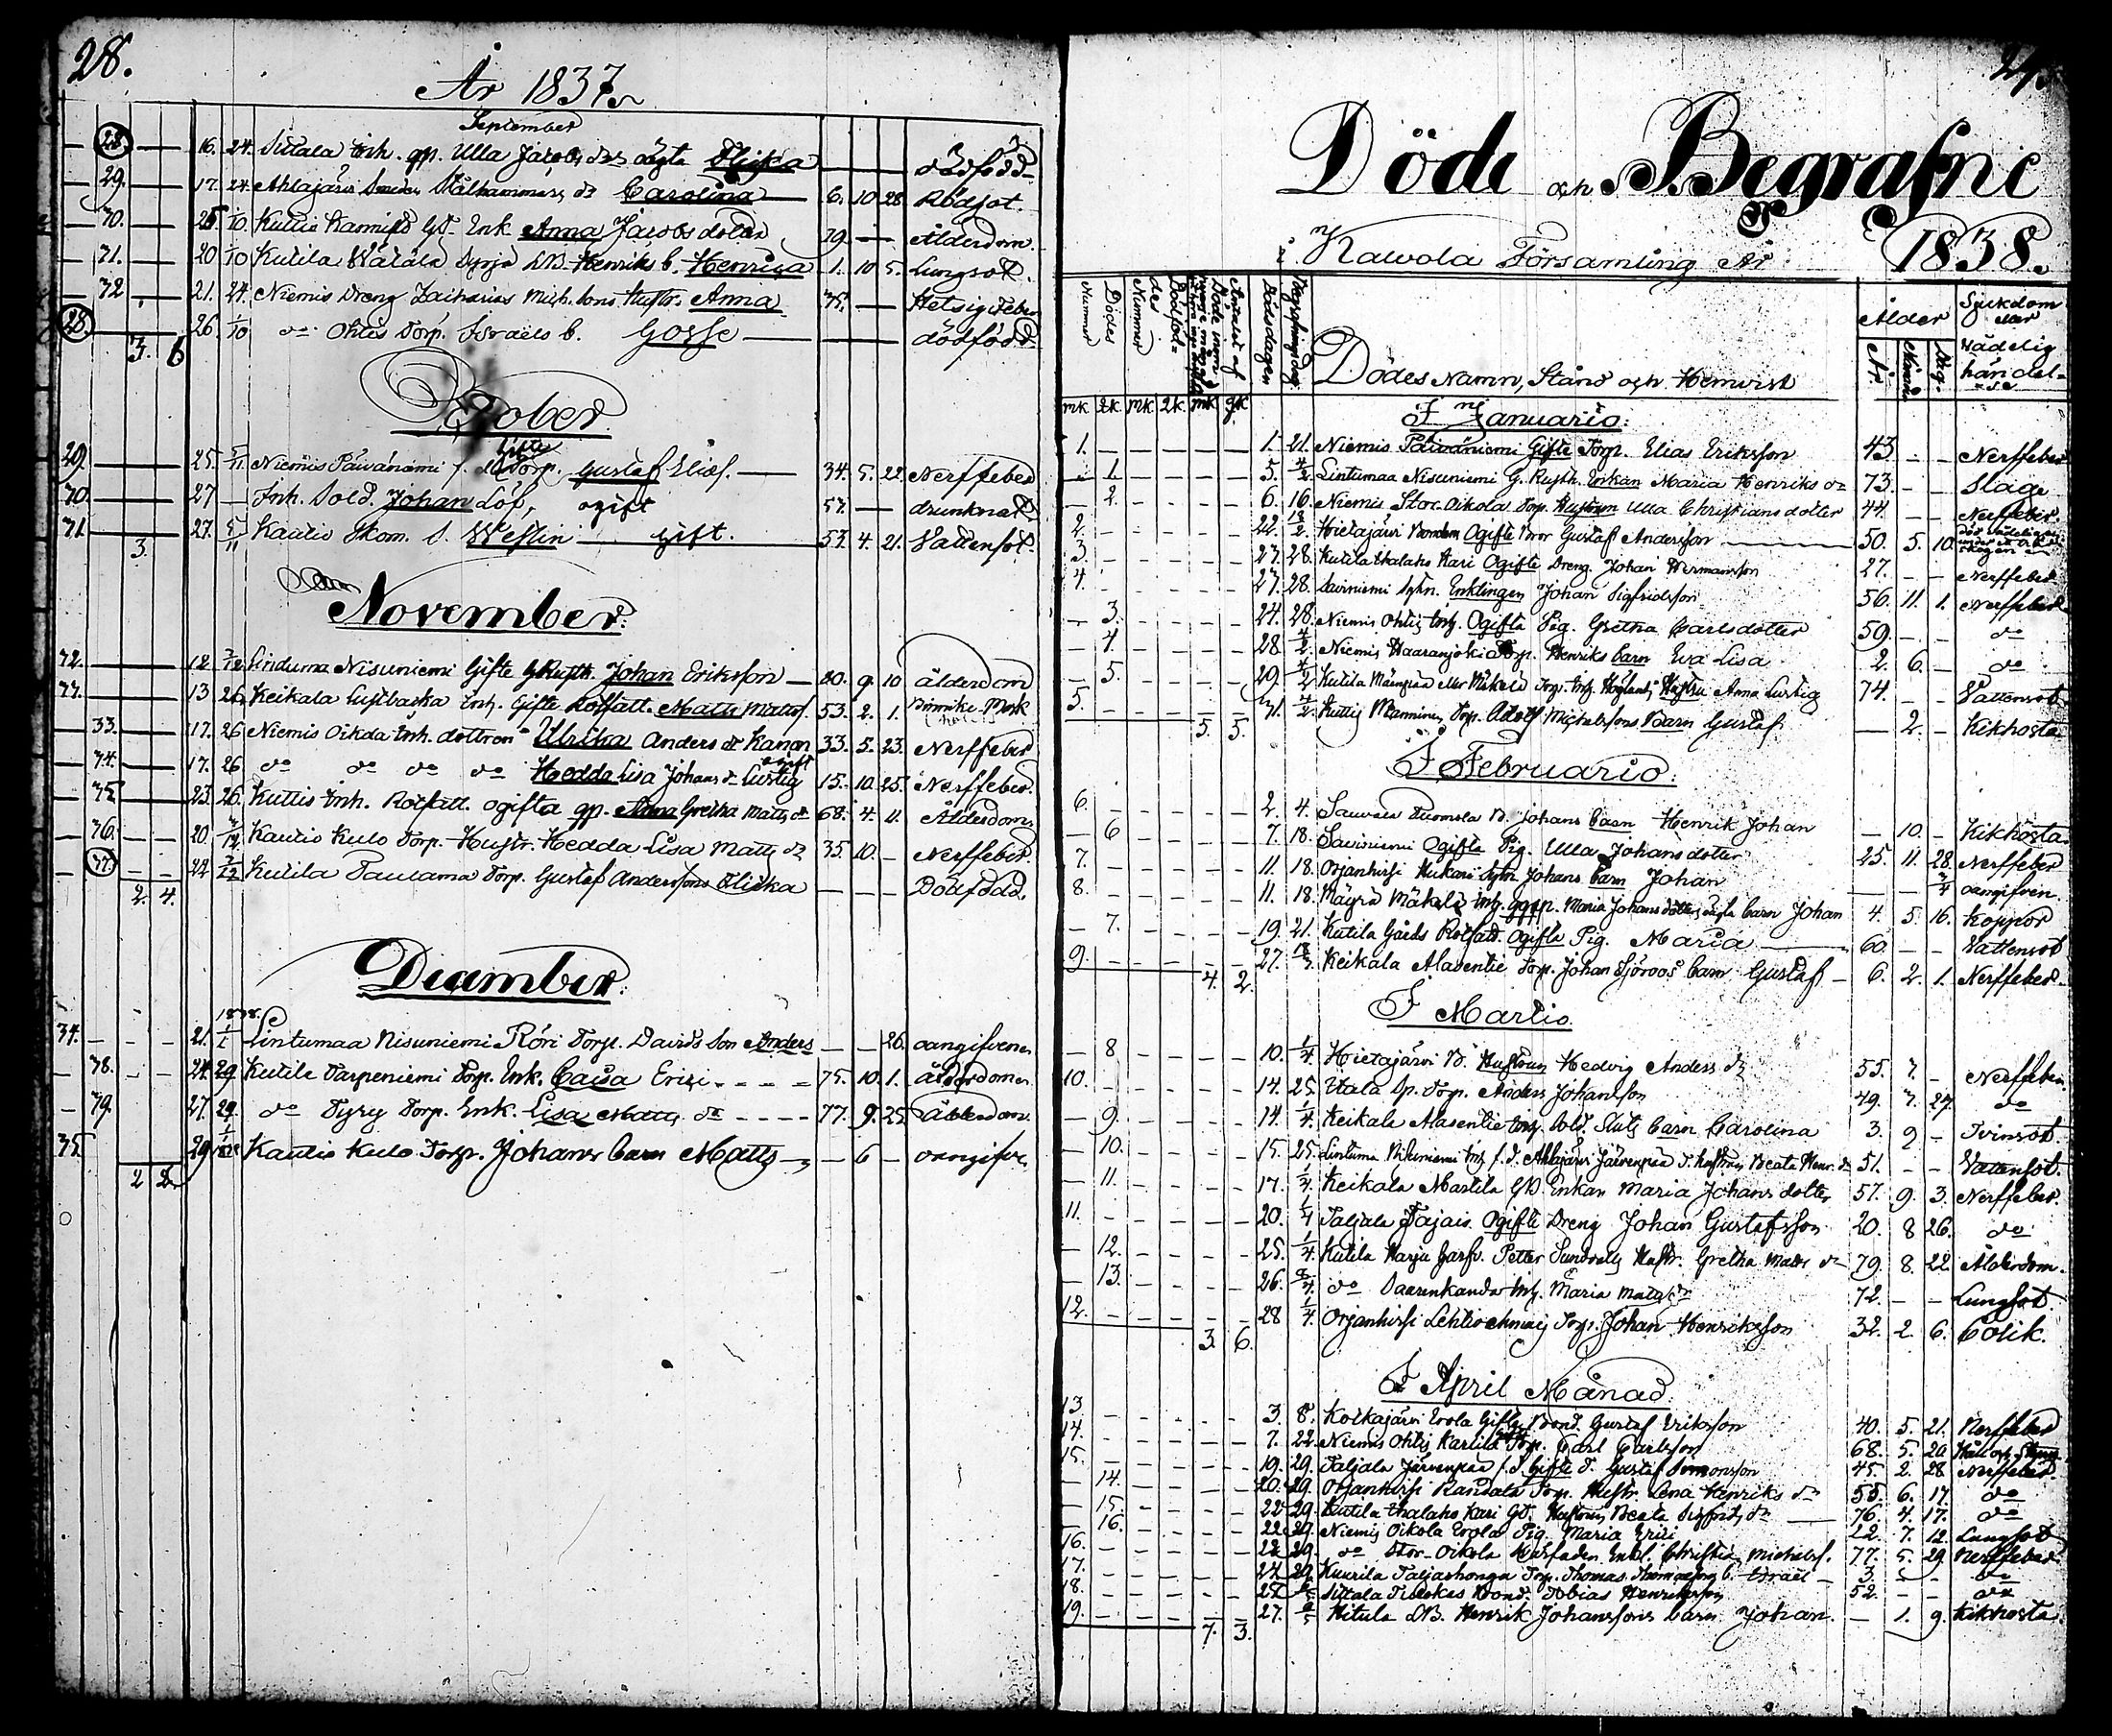 28.
År 1837.
September
28. 16. 24. Sittala Inh. qp. Ulla Jacobs drs oägta Flicka dödfödd
29. 17. 24. Ahlajärvi Smeden Stålhammars dr Carolina 6. 10 28 Rödsot.
70. 25 1/10. Kuttis Kannisto GB. Enk. Anna Jacobsdotter 79. Ålderdom.
71. 20 1/10 Kutila Wätälä Dyrjä LB. Henriks b. Henrica 1. 10 5. Lungsot.
72 21. 24. Niemis Dreng Zacharias Mich.sons Hustr. Anna 75. Hetsig feber
28 26. 1/10 do Ohlis Torp. Israels b. Gosse dödfödd
3. 6
October
29. 25. 5/11 Niemis Päiväniemi f. d. Gifte Torp. Gustaf Elias. 34. 5. 22. Nerffeber
70. 27 Inh. Sold. Johan Löf, ogift 57. drunknat.
71. 27. 5/11 Kautio Skom. S. Westlin gift. 57. 4. 21. Vattensot.
3.
November.
72. 12 3/12 Linduma Nisuniemi Gifte G Rusth. Johan Eriksson 80. 9. 10 ålderdom
77. 13 26 Keikala Lustbacka Inh. Gifte Rotfatt. Matts Mattss. 53. 2. 1.
33. 17. 26 Niemis Oikola Inh. dottren Ulrika Anders dr Kanon 33. 5. 23. Nerffeber
74. 17. 26 do do do do Hedda Lisa Johans dr Lustig ogift 15. 10. 25. Nerffeber.
75 23. 26. Kuttis Inh. Rotfatt. ogifta qp. Anna Gretha Matts dr 68. 4. 11. Ålderdom.
76. 20. 3/12 Kautio Kulo Torp. Hustr. Hedda Lisa Matts dr 35. 10. Nerffeber.
77. 22 3/12 Kutila Paulama Torp. Gustaf Anderssons Flicka Dödfödd.
2. 4.
December.
1838.
34. 21. 1/1 Lintumaa Nisuniemi Röri Torp. Davids Son Anders 26. oangifven.
78. 24. 29. Kutila Tarpeniemi Torp. Enk. Caisa Erici 75. 10. 1. ålderdomen.
79. 27. 29. do Tyry Torp. Enk. Lisa Matts dr 77. 9. 25. ålderdom.
75. 29 1/1 1838 Kautio Kulo Torp. Johans barn Matts 6 oangifve.
2 2
Döde och Begrafne
i Kalvola Församling År 1838.
Dödes Nummer
Dödföddes Nummer
Dödsdagen
Begrafningsdag
Dödes Namn, Stånd och Hemvist
Ålder
År. Månad. Dag.
Sjukdom eller vådelig händelse
mk. qk. mk qk. mk qk.
I Januario:
1. 1. 21. Niemis Päiväniemi Gifte Torp. Elias Eriksson 43 Nerffeber
1. 5. 4/2 Lintumaa Nisuniemi G. Rusth. Enkan Maria Henriks dr 73. Slage
2. 6 16. Niemis Stor Oikola Torp. Hustrun Ulla Christiansdotter 44. Nerffeber.
2. 22. 18/2 Hietajärvi Bondens Ogifte Bror Gustaf Andersson 50. 5. 10.
3. 27. 28. Kutila Uhalaho Kari Ogifte Dreng. Johan Hermansson 27. Nerffeber
4. 27. 28. Sauvniemi Sytn. Enklingen Johan Sigfridsson 56. 11. 1. Nerffeber
3. 24. 28. Niemis Ohlis Inh. Ogifta Pig. Gretha Carlsdotter 59. do
4. 28 4/2 Niemis Haaranjoki Torp. Henriks barn Eva Lisa 2. 6. do
5. 29 4/2 Kutila Mäenpää eller Mäkelä Torp. Inh. Höglunds Hustru Anna Lustig 74. Vattensot
5. 31. 4/2. Kuttis Manninen Torp. Adolf Michelssons Barn Gustaf 2. Kikhosta.
5. 5.
I Februario:
6. 2. 4. Sauvala Tuomola B. Johans barn Henrik Johan 10. Kikhosta
6 7. 18. Savniemi Ogifta Pig. Ulla Johansdotter 25. 11. 28. Nerffeber
7. 11. 18. Orjanhirsi Hukari Sytn Johans barn Johan 3/4 oangifven.
8. 11. 18. Mäyrä Mäkelä Inh. qp. Maria Johansdotters oägta barn Johan 4. 5. 16. Koppor
7. 19. 21. Kutila Gårds Rotfatt. Ogifta Pig. Maria 60. Vattensot
9. 27. 18/3 Keikala Alasentie Torp. Johan Sjöroos barn Gustaf 6. 2. 1. Nerffeber.
4. 2.
I Martio.
8 10. 1/4. Hietajärvi B. Hustrun Hedvig Anders dr 55. 7 Nerffeber.
10. 14. 25. Utala Sp. Torp. Anders Johansson 49. 7. 27. do
9. 14. 1/4. Keikala Alasentie Inh. Sold. Stuts barn Carolina 3. 9 Tvinsot.
10. 15. 25. Lintuma Nisuniemi Inh. f. d. Ahlajärvi Järvenpää T. hustrun Beata Henr. dr 51. Vattensot.
11. 17. 1/4. Keikala Martila GB. Enkan Maria Johans dotter 57. 9. 3. Nerffeber.
11. 20. 1/4 Taljala Pajais. Ogifte Dreng Johan Gustafsson 20. 8 26. do
12. 25. 1/4. Kutila Harju Garfv. Petter Sundvalls Hustr. Gretha Matts dr 79. 8. 22. Ålderdom.
13. 26. 8/4 do Saarenkanda Inh. Maria Matts dr 72. Lungsot.
12. 28 1/4. Orjanhirsi Lehtiochmaij Torp. Johan Henriksson 32. 2. 6. Colik.
3. 6.
I April Månad.
13 3. 8. Kotkajärvi Erola Gifte Bond. Gustaf Eriksson 40. 5. 21. Nerffeber
14. 7. 22. Niemis Ohlis Karlila Torp. Carl Carlsson 68. 5. 20.
15. 19. 29. Taljala Järvenpää f. d. Gifte T. Gustaf Simonsson 45. 2. 28 Nerffeber.
14. 20. 29. Orjanhirsi Randala Torp. Hustr. Lena Henriks dr 55. 6. 17. do
15. 22. 29. Kutila Uhalaho Kari GB. Hustrun Beata Sigfrids dr 76. 4. 17. do
16. 22. 29. Niemis Oikola Erola Pig. Maria Erici 22. 7. 12. Lungsot
16. 22 29. do Stor-Oikola Husfaden Enkl. Christian Michelss. 77. 5. 29. Nerffeber.
17. 24 29. Kuurila Taljashonga Torp. Thomas Thomassons b. Israel 3. do
18. 27. 6/5 Sittala Tuiskas Bond. Tobias Henriksson 52. do
19. 27. 6/5 Hitula LB. Henrik Johanssons barn Johan. 1. 9. Kikhosta.
7. 3.